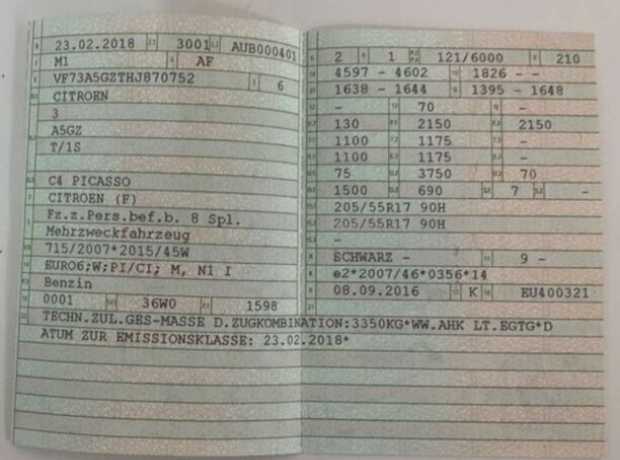 23.02.2018 3001 AUB000401
M1 AF
VF73A5GZTHJ870752 6
CITROEN
3
A5GZ
T/1S
C4 PICASSO
CITROEN (F)
Fz.z.Pers.bef.b. 8 Spl.
Mehrzweckfahrzeug
715/2007*2015/45W
EURO6;W;PI/CI; M, N1 I
Benzin
0001 36W0 1598
2 1 121/6000 210
4597 - 4602 1826 - -
1638 - 1644 1395 - 1648
- 70 -
130 2150 2150
1100 1175 -
1100 1175 -
75 3750 70
1500 690 7 -
205/55R17 90H
205/55R17 90H
-
SCHWARZ - 9 -
e2*2007/46*0356*14
08.09.2016 K EU400321
TECHN.ZUL.GES-MASSE D.ZUGKOMBINATION:3350KG*WW.AHK LT.EGTG*D
ATUM ZUR EMISSIONSKLASSE: 23.02.2018*